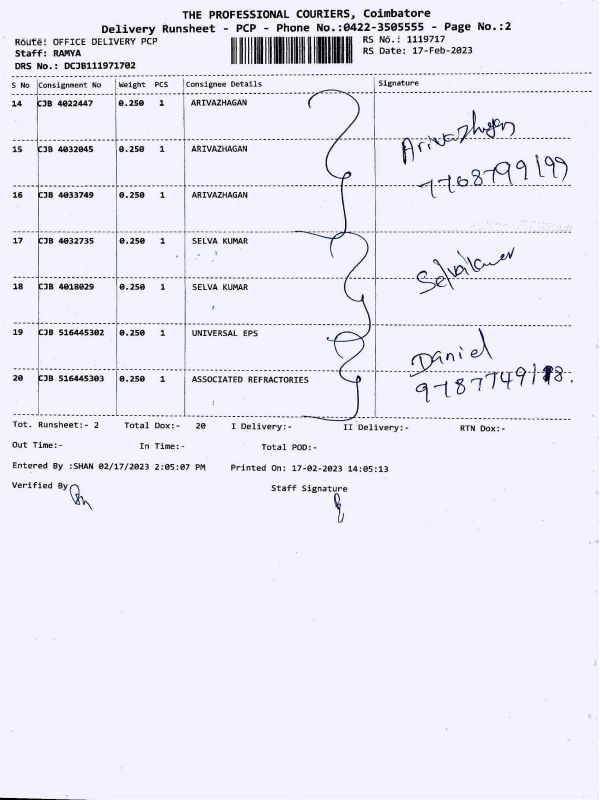 THE PROFESSIONAL COURIERS, Coimbatore
Delivery Runsheet - PCP - Phone No.:0422-3505555 - Page No.:2
Route: OFFICE DELIVERY PCP
RS No.: 1119717
Staff: RAMYA
RS Date: 17-Feb-2023
DRS No.: DCJB111971702
S No Consignment No Weight PCS Consignee Details Signature
14 CJB 4022447 0.250 1 ARIVAZHAGAN
Arivazhagan
15 CJB 4032045 0.250 1 ARIVAZHAGAN
7768799199
16 CJB 4033749 0.250 1 ARIVAZHAGAN
17 CJB 4032735 0.250 1 SELVA KUMAR
Selvakumar
18 CJB 4018029 0.250 1 SELVA KUMAR
19 CJB 516445302 0.250 1 UNIVERSAL EPS
Daniel
20 CJB 516445303 0.250 1 ASSOCIATED REFRACTORIES
Tot. Runsheet:- 2 Total Dox:- 20 I Delivery:- II Delivery:- RTN Dox:-
Out Time:- In Time:- Total POD:-
Entered By :SHAN 02/17/2023 2:05:07 PM Printed On: 17-02-2023 14:05:13
Verified By
Staff Signature